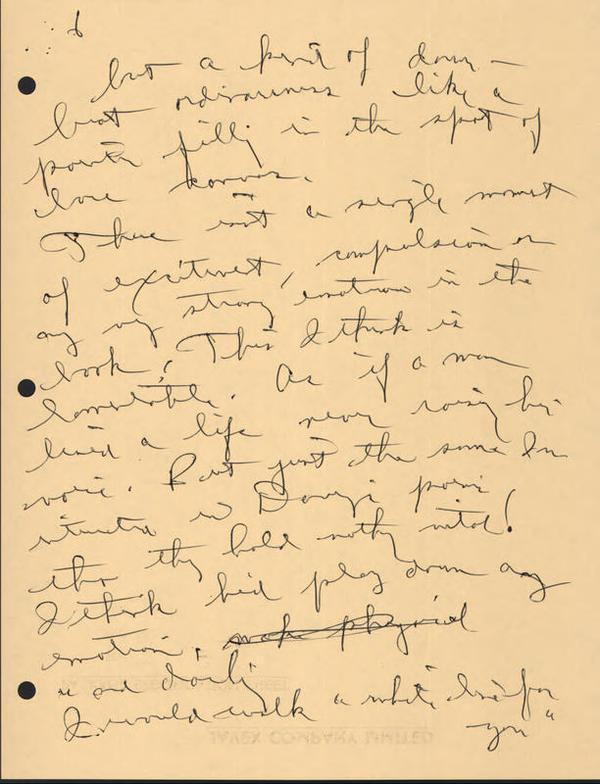 6
but a kind of down-
beat ordinariness like a
filling in the spot of
bare canvas.
There isn't a single moment
of excitement, compulsion or
any very strong emotion in the
book. This I think is
lamentable. As if a man
lived a life never raising his
voice. But just the same I'm
interested in poems
tho they hold nothing vital!
I think he'd play down any
emotion, physical
and
I would walk a white line for
you"